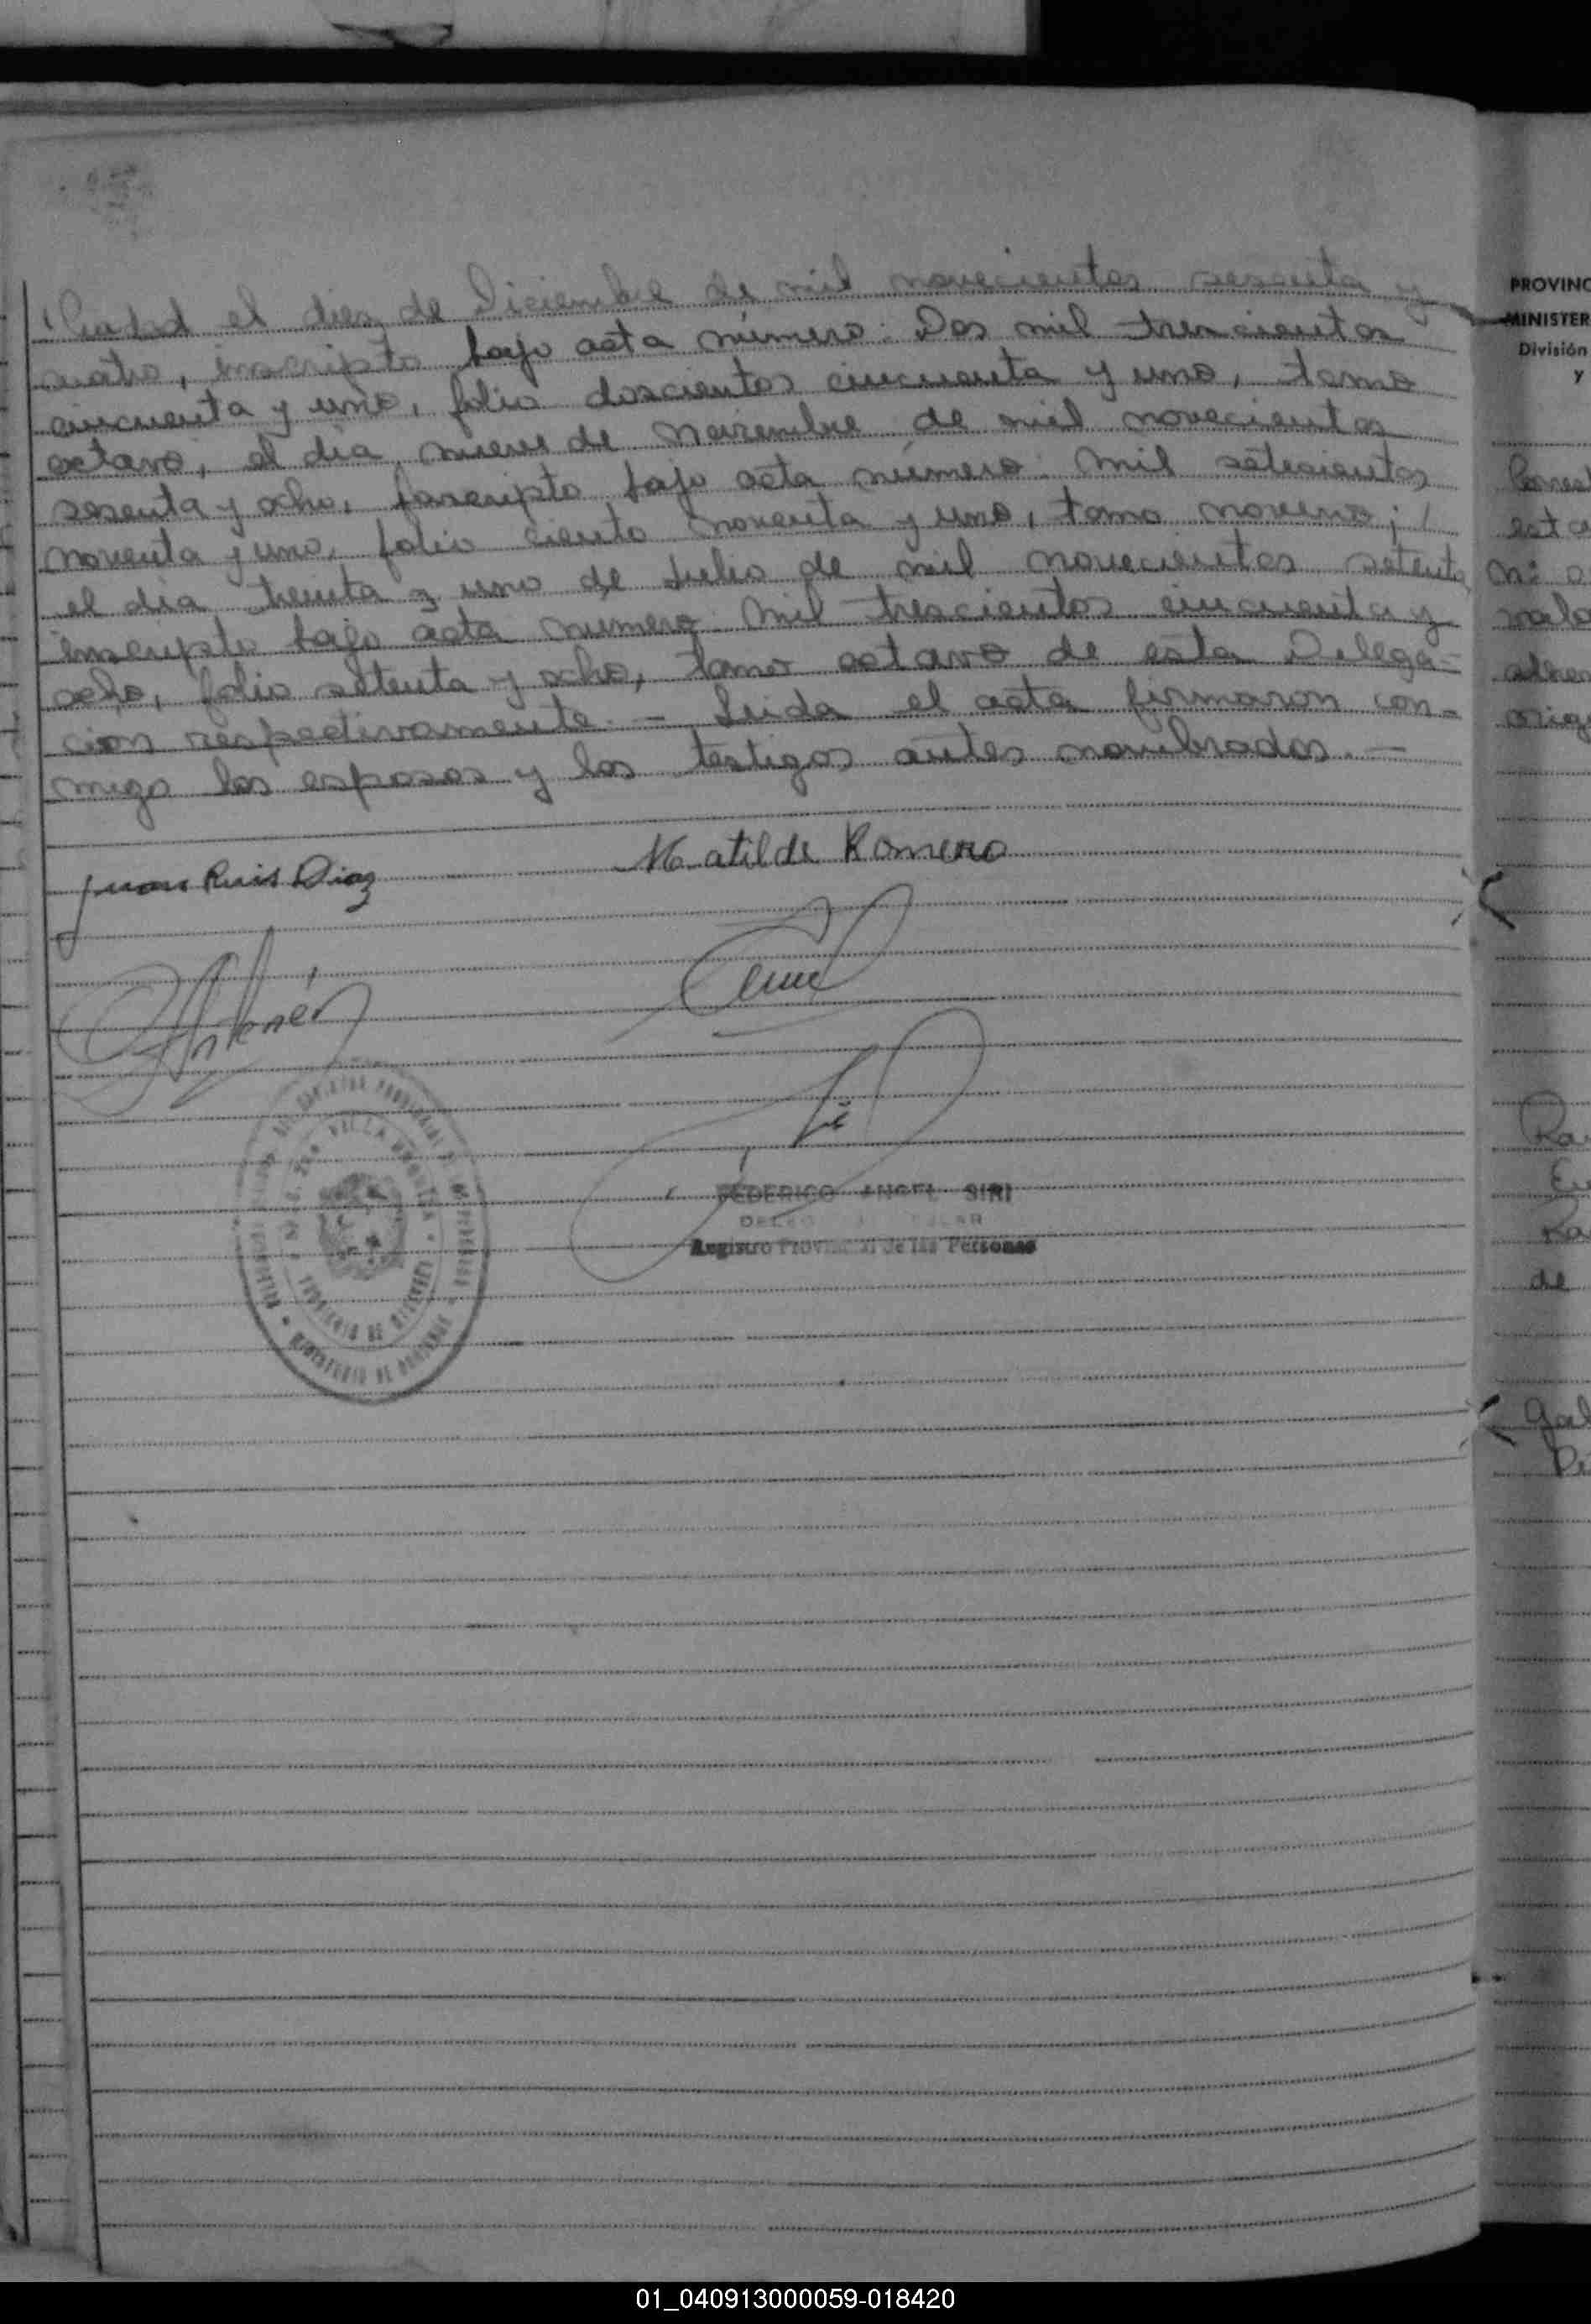 Ciudad el diez de Diciembre de mil novecientos sesenta y
cuatro, inscripto bajo acta número: Dos mil trescientos
cincuenta y uno, folio doscientos cincuenta y uno, tomo
octavo, el dia nueve de Noviembre de mil novecientos
sesenta y ocho, inscripto bajo acta número: mil setecientos
noventa y uno, folio ciento noventa y uno, tomo noveno; /
el dia treinta y uno de Julio de mil novecientos setenta
inscripto bajo acta numero mil trescientos cincuenta y
ocho, folio setenta y ocho, tomo octavo de esta Delega-
cion respectivamente. - Leida el acta firmaron con-
migo los esposos y los testigos antes nombrados. -
Juan Ruis Diaz
Matilde Romero
FEDERICO ANGEL SIRI
Registro Provincial de las Personas
PROVINC
MINISTER
División
y
01_040913000059-018420